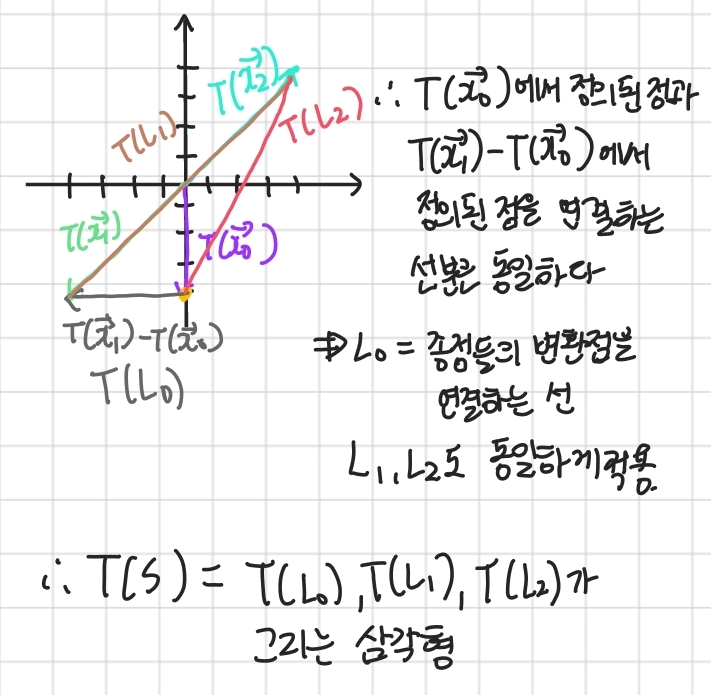 T(x₂)
T(L₁)
T(L₂)
T(x₁)
T(x₀)
T(x₁)-T(x₀)
T(L₀)
∴ T(x₀)에서 정의된 점과
T(x₁)-T(x₀)에서
정의된 점을 연결하는
선분은 동일하다
⇒ L₀ = 종점들의 변환점을
연결하는 선
L₁, L₂도 동일하게 적용.
∴ T(S) = T(L₀), T(L₁), T(L₂)가
그리는 삼각형